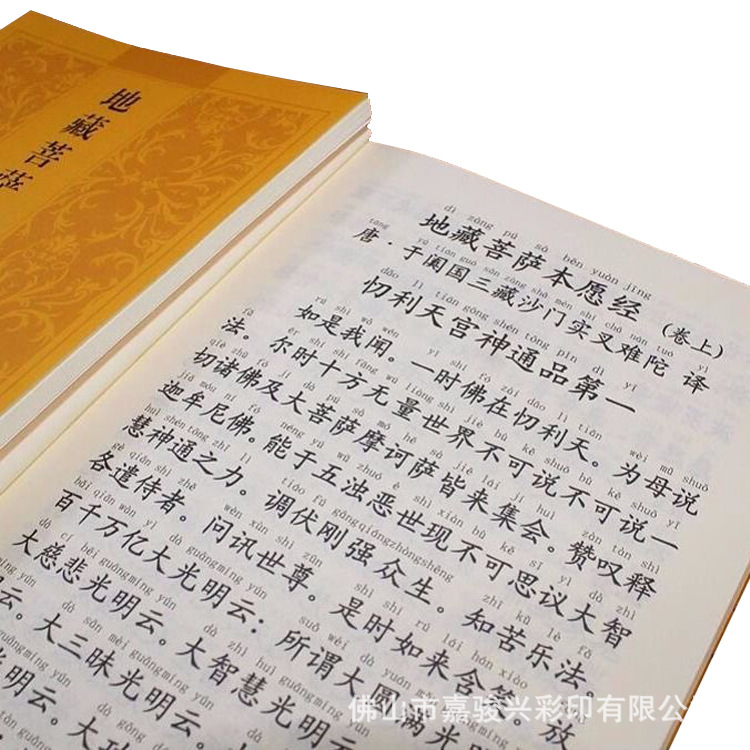 地藏菩萨
dì zàng pú sà běn yuàn jīng
地藏菩萨本愿经(卷上)
táng yú tián guó sān zàng shā mén shí chā nán tuó yì
唐·于阗国三藏沙门实叉难陀 译
dāo lì tiān gōng shén tōng pǐn dì yī
忉利天宫神通品第一
rú shì wǒ wén yī shí fó zài dāo lì tiān wèi mǔ shuō
如是我闻。一时佛在忉利天。为母说
fǎ ěr shí shí fāng wú liàng shì jiè bù kě shuō bù kě shuō yī
法。尔时十方无量世界不可说不可说一
qiè zhū fó jí dà pú sà mó hē sà jiē lái jí huì zàn tàn shì
切诸佛及大菩萨摩诃萨皆来集会。赞叹释
jiā móu ní fó néng yú wǔ zhuó è shì xiàn bù kě sī yì dà zhì
迦牟尼佛。能于五浊恶世现不可思议大智
huì shén tōng zhī lì tiáo fú gāng qiáng zhòng shēng zhī kǔ lè fǎ
慧神通之力。调伏刚强众生。知苦乐法。
gè qiǎn shì zhě wèn xùn shì zūn shì shí rú lái hán xiào
各遣侍者。问讯世尊。是时如来含笑。放
bǎi qiān wàn yì dà guāng míng yún suǒ wèi dà yuán mǎn guāng
百千万亿大光明云；所谓大圆满光
dà cí bēi guāng míng yún dà zhì huì guāng míng yún
大慈悲光明云。大智慧光明云。
dà sān mèi guāng míng yún
云。大三昧光明云。
佛山市嘉骏兴彩印有限公